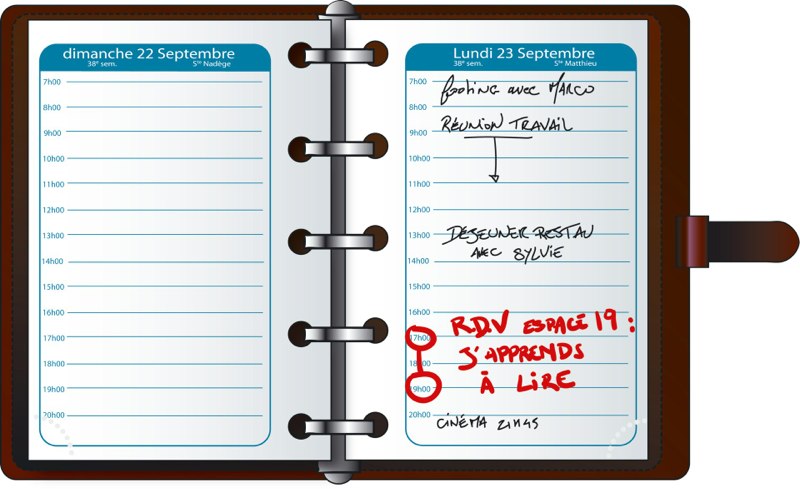 dimanche 22 Septembre
38e sem. Ste Nadège
7h00
8h00
9h00
10h00
11h00
12h00
13h00
14h00
15h00
16h00
17h00
18h00
19h00
20h00
Lundi 23 Septembre
38e sem. St Matthieu
7h00 footing avec MARCO
8h00
9h00 RÉUNION TRAVAIL
10h00
11h00
12h00
13h00 DÉJEUNER RESTAU
14h00 AVEC SYLVIE
15h00
16h00
RDV ESPACE 19 :
17h00
J'APPRENDS
18h00
19h00 À LIRE
20h00
CINÉMA 21H45